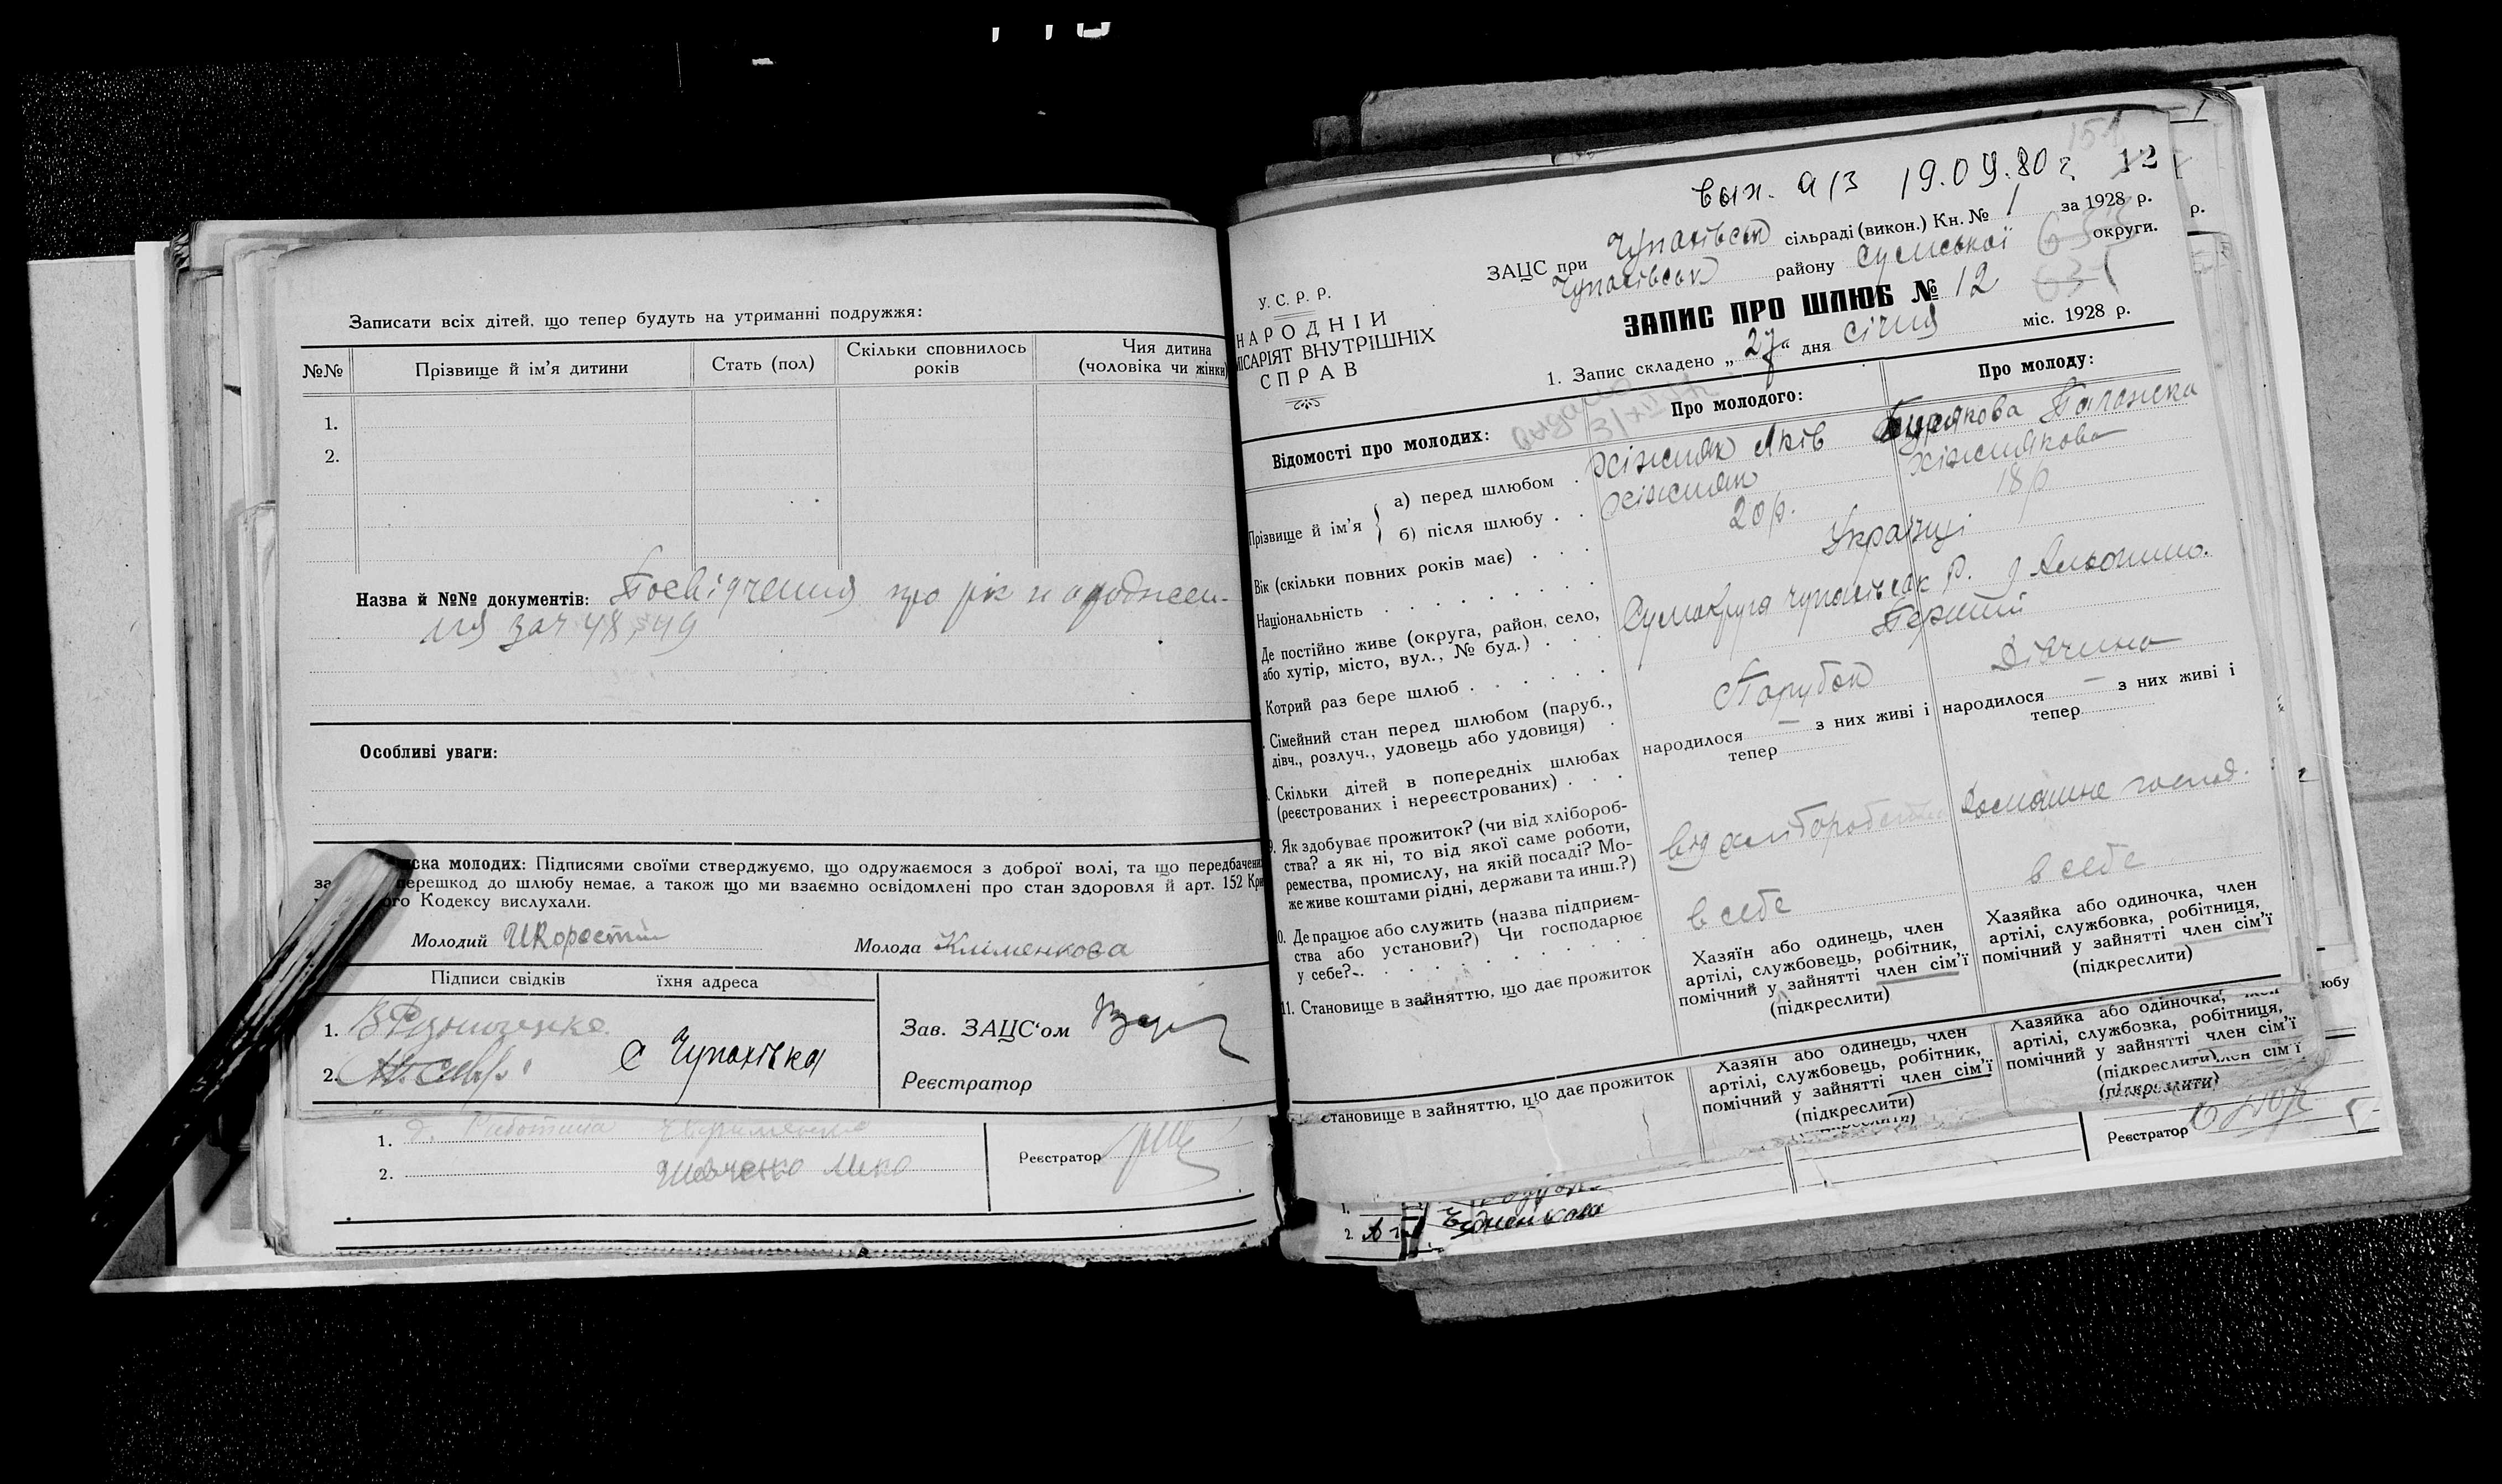 Записати всіх дітей, що тепер будуть на утриманні подружжя:
№№ Прізвище й ім'я дитини Стать (пол) Скільки сповнилось років Чия дитина (чоловіка чи жінки)
1.
2.
Назва й №№ документів: Посвідчення про рік народжен-
ня за № 48, 49
Особливі уваги:
молодих: Підписями своїми стверджуємо, що одружаємося з доброї волі, та що передбачених
перешкод до шлюбу немає, а також що ми взаємно освідомлені про стан здоровля й арт. 152 Кри
Кодексу вислухали.
Молодий Молода Клименкова
Підписи свідків їхня адреса
1.
2. с Чупахівка
Зав. ЗАЦС'ом
Реєстратор
1.
2. Шевченко
Реєстратор
вых. 913 19.09.80 г. 12
У. С. Р. Р.
НАРОДНІЙ
МІСАРІЯТ ВНУТРІШНІХ
СПРАВ
ЗАЦС при Чупахівськ сільраді (викон.) Кн. № 1 за 1928 р.
Чупахівськ району Сумської округи.
ЗАПИС ПРО ШЛЮБ № 12
1. Запис складено „27" дня січня міс. 1928 р.
Відомості про молодих: Про молодого: Про молоду:
Прізвище й ім'я
а) перед шлюбом . Хіжняк Яків Бурякова Палажка
б) після шлюбу . . Хіжняк Хіжнякова
Вік (скільки повних років має) . . . 20 р. 18 р
Національність . . . . . . . Українці
Де постійно живе (округа, район, село,
або хутір, місто, вул., № буд.) . . . Сумокруга Чупахівськ р.
Котрий раз бере шлюб . . . . . . Перший
Сімейний стан перед шлюбом (паруб.,
дівч., розлуч., удовець або удовиця) . Парубок Дівчина
Скільки дітей в попередніх шлюбах
(реєстрованих і нереєстрованих) . . .
народилося — з них живі і
тепер
народилося — з них живі і
тепер
9. Як здобуває прожиток? (чи від хлібороб-
ства? а як ні, то від якої саме роботи,
ремества, промислу, на якій посаді? Мо-
же живе коштами рідні, держави та инш.?)
від хліборобства Домашнє господ.
10. Де працює або служить (назва підприєм-
ства або установи?) Чи господарює
у себе?
в себе в себе
11. Становище в зайняттю, що дає прожиток
Хазяїн або одинець, член
артілі, службовець, робітник,
помічний у зайнятті член сім'ї
(підкреслити)
Хазяйка або одиночка, член
артілі, службовка, робітниця,
помічний у зайнятті член сім'ї
(підкреслити)
становище в зайняттю, що дає прожиток
Хазяїн або одинець, член
артілі, службовець, робітник,
помічний у зайнятті член сім'ї
(підкреслити)
Хазяйка або одиночка, член
артілі, службовка, робітниця,
помічний у зайнятті член сім'ї
(підкреслити)
(підкреслити)
Реєстратор
1.
2.